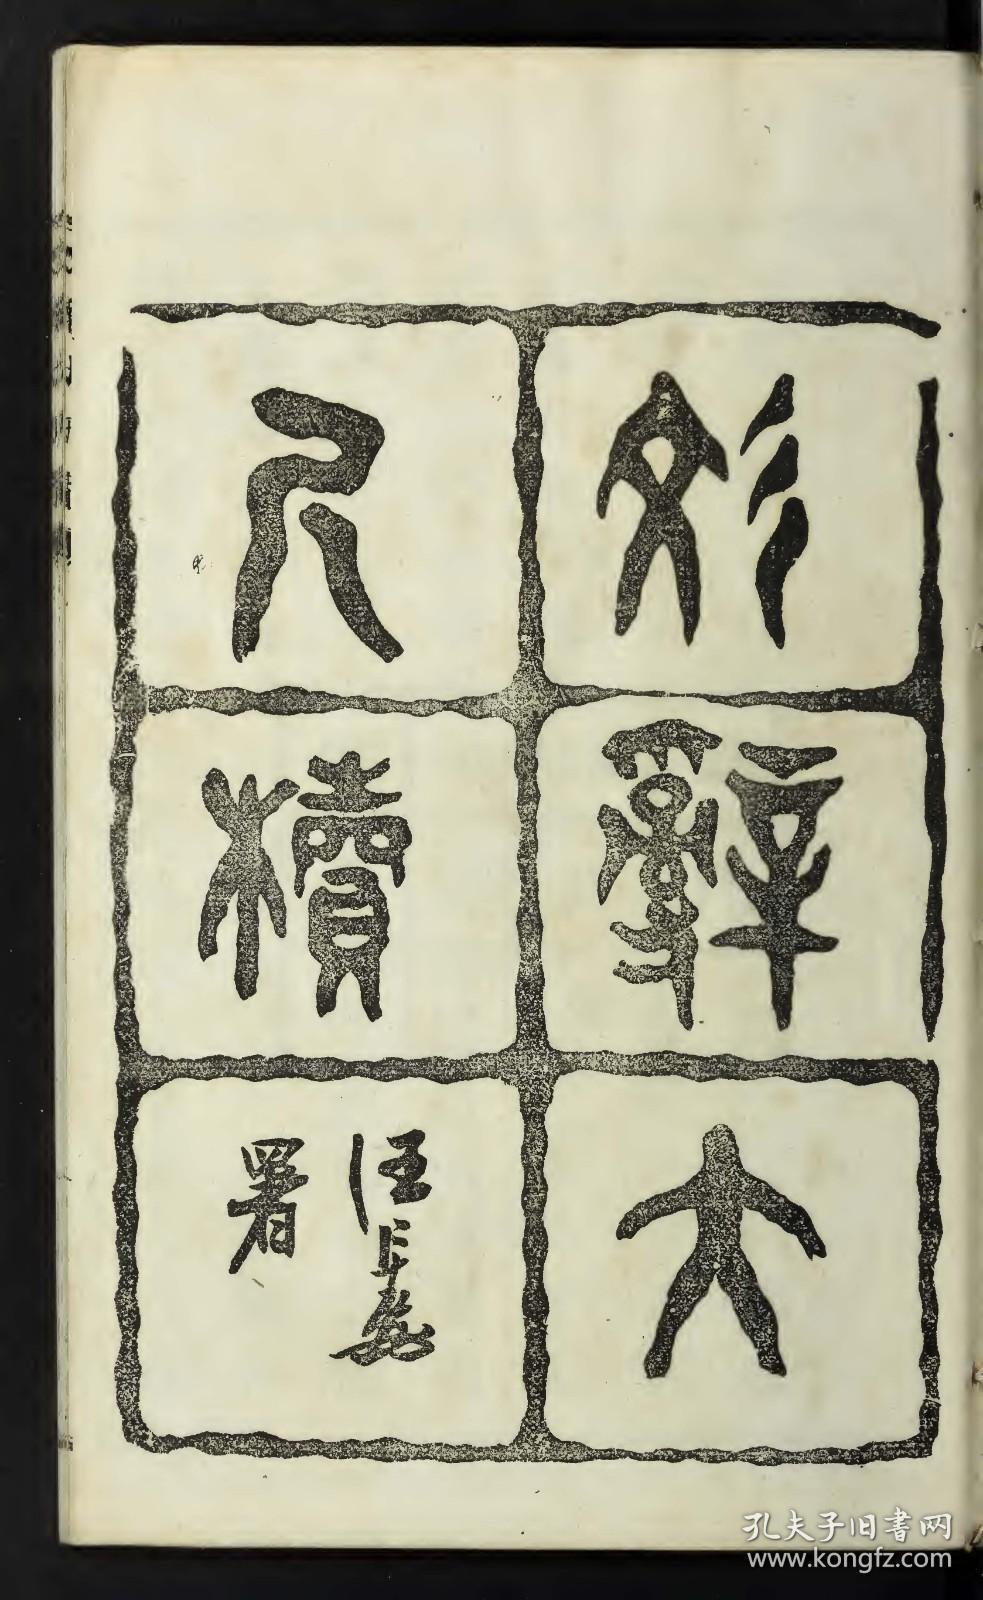 彣辭大
尺牘
汪
署
孔夫子旧書网
www.kongfz.com